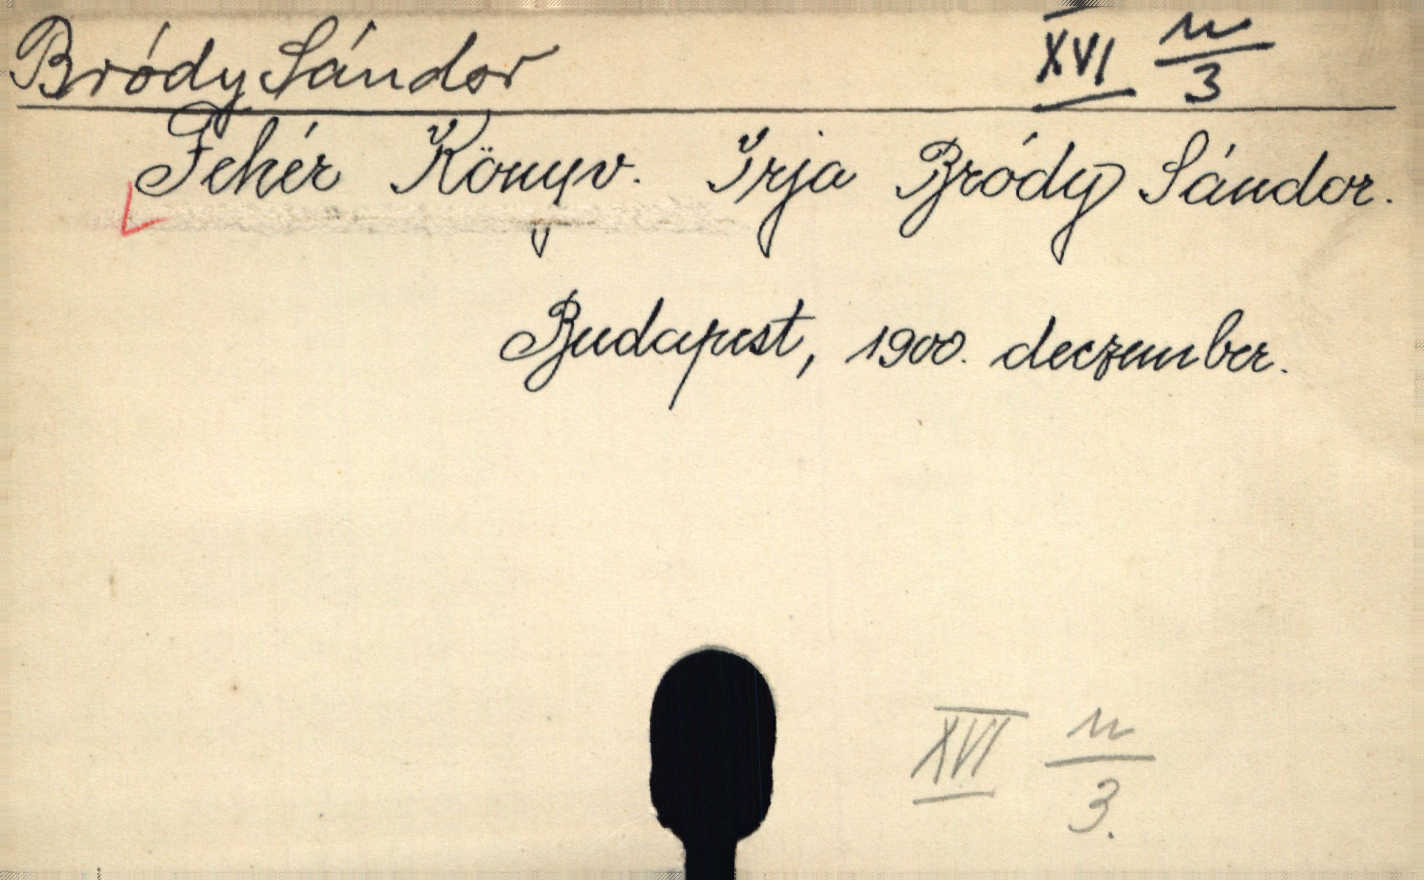 Bródy Sándor XVI n/3
Fehér Könyv. Irja Bródy Sándor.
Budapest, 1900. deczember.
XVI n/3.